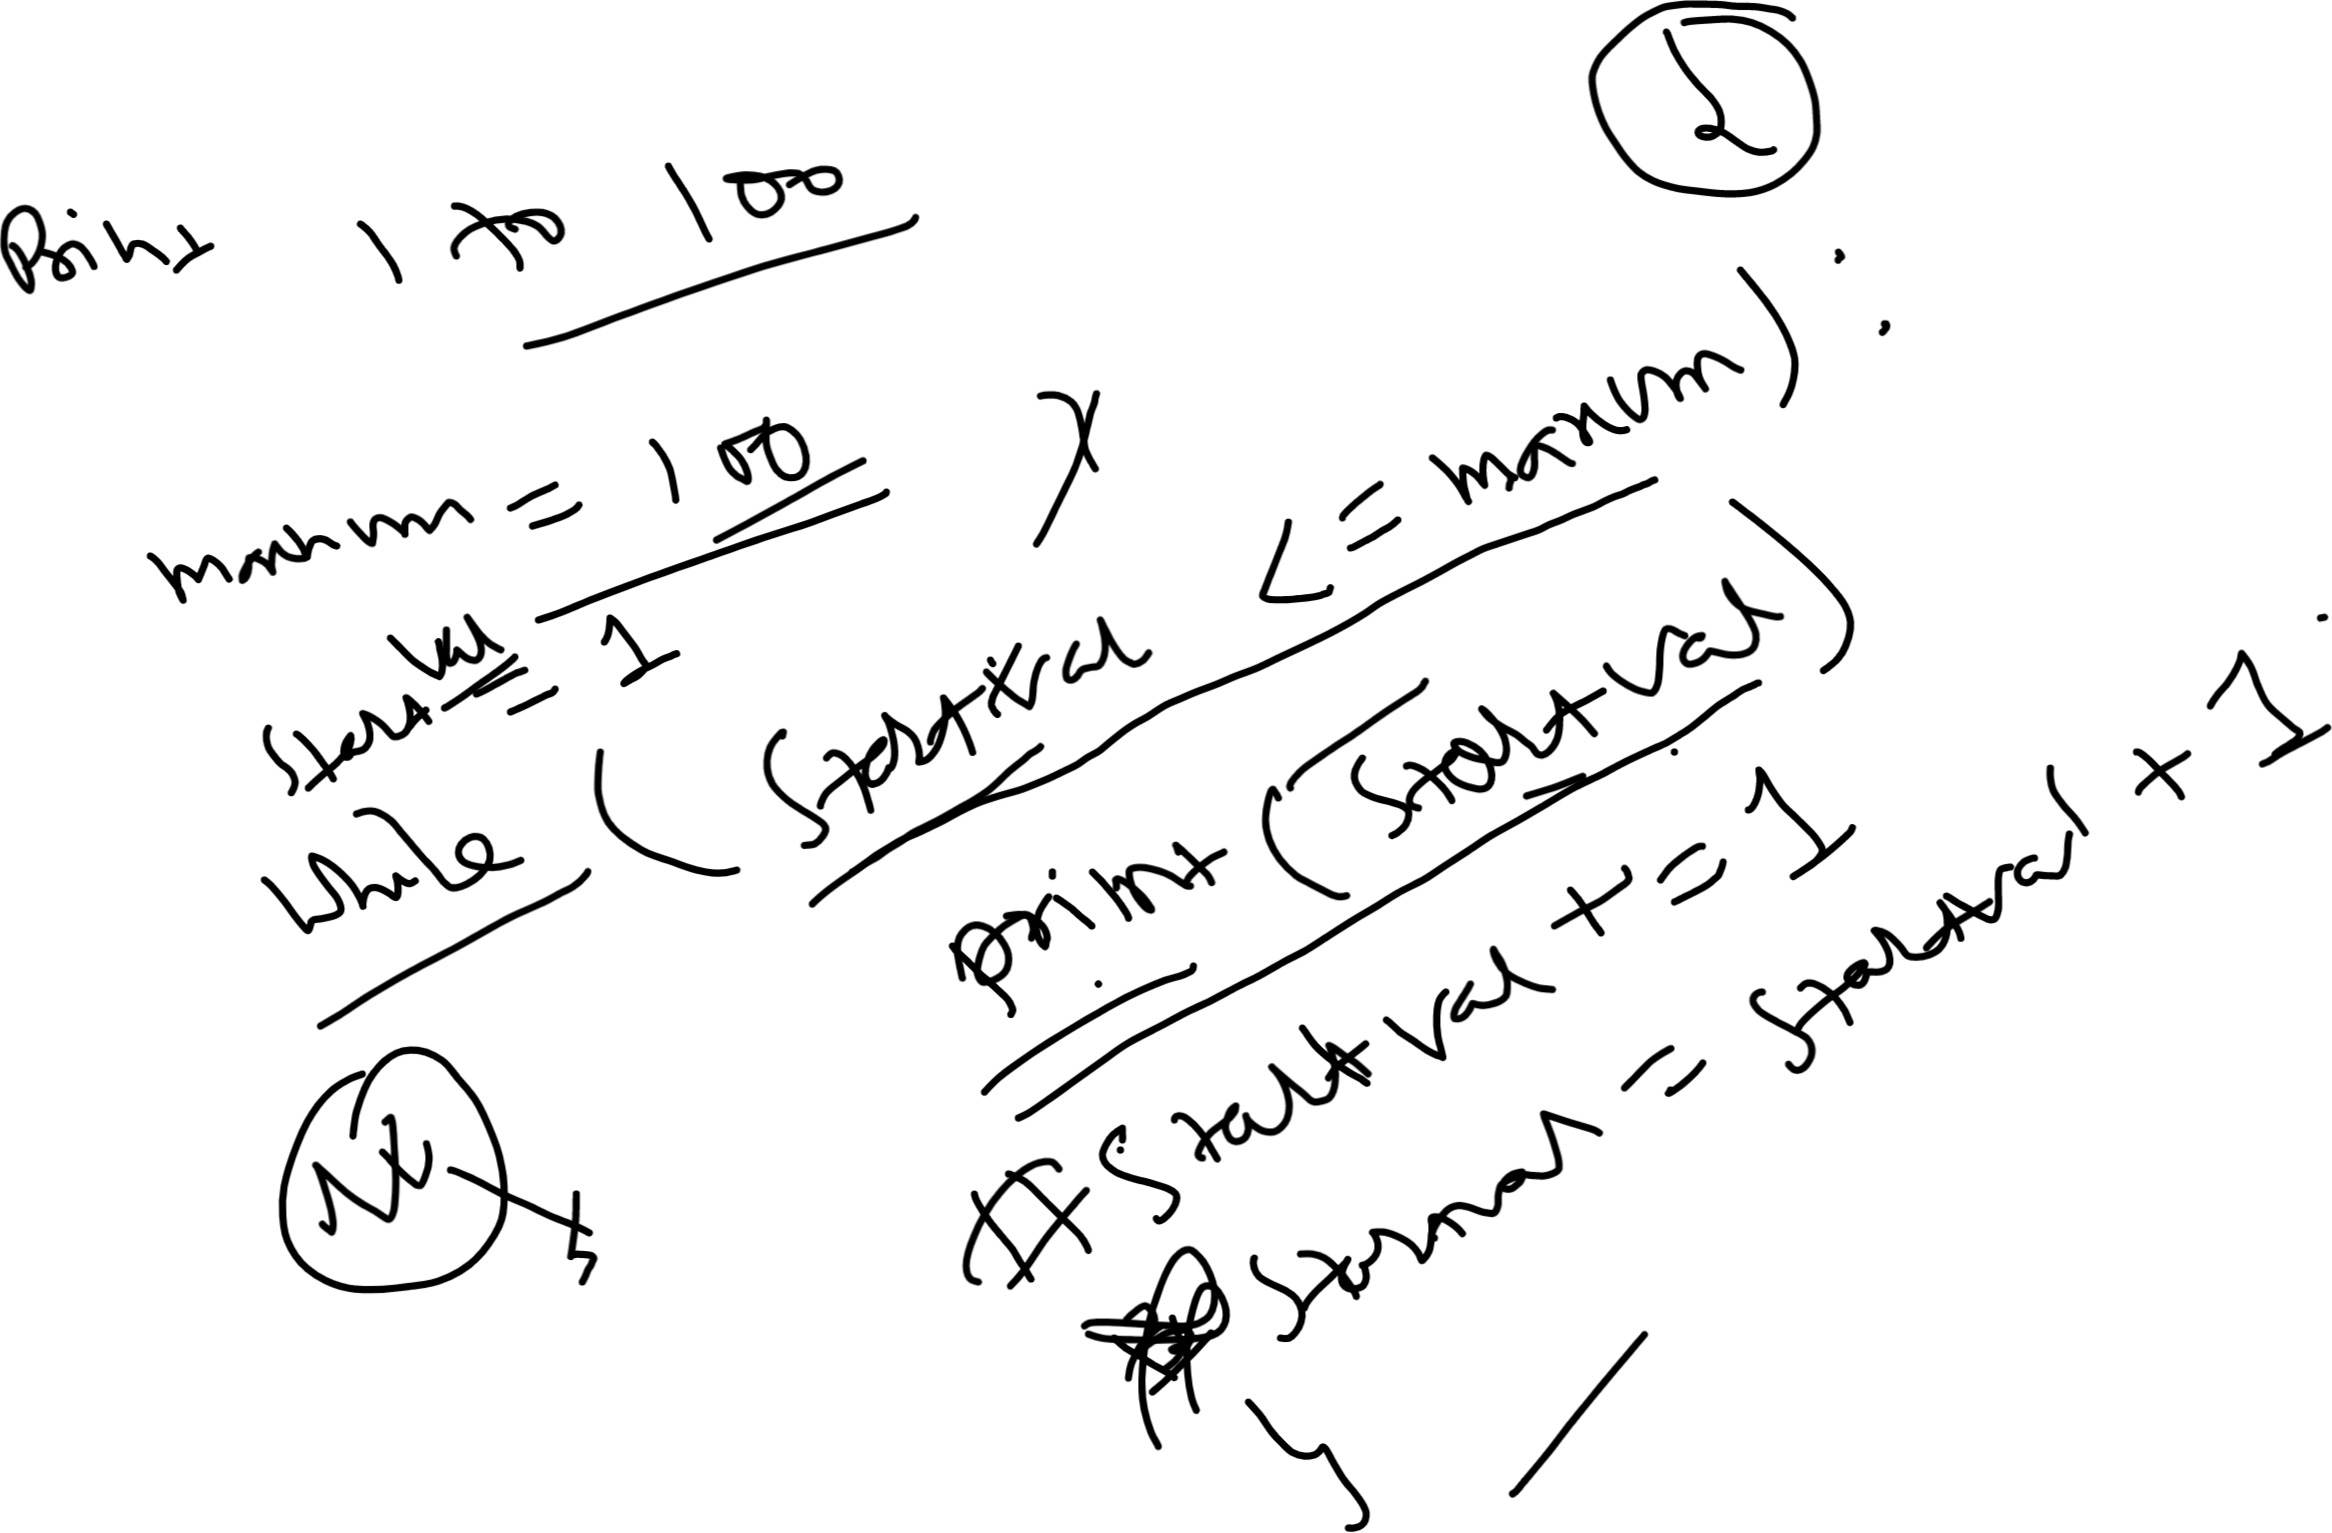 2
Print 1 to 100
maximum = 100
startval = 1
While (startval <= maximum):
print (startval)
# startval += 1
startval = startval + 1